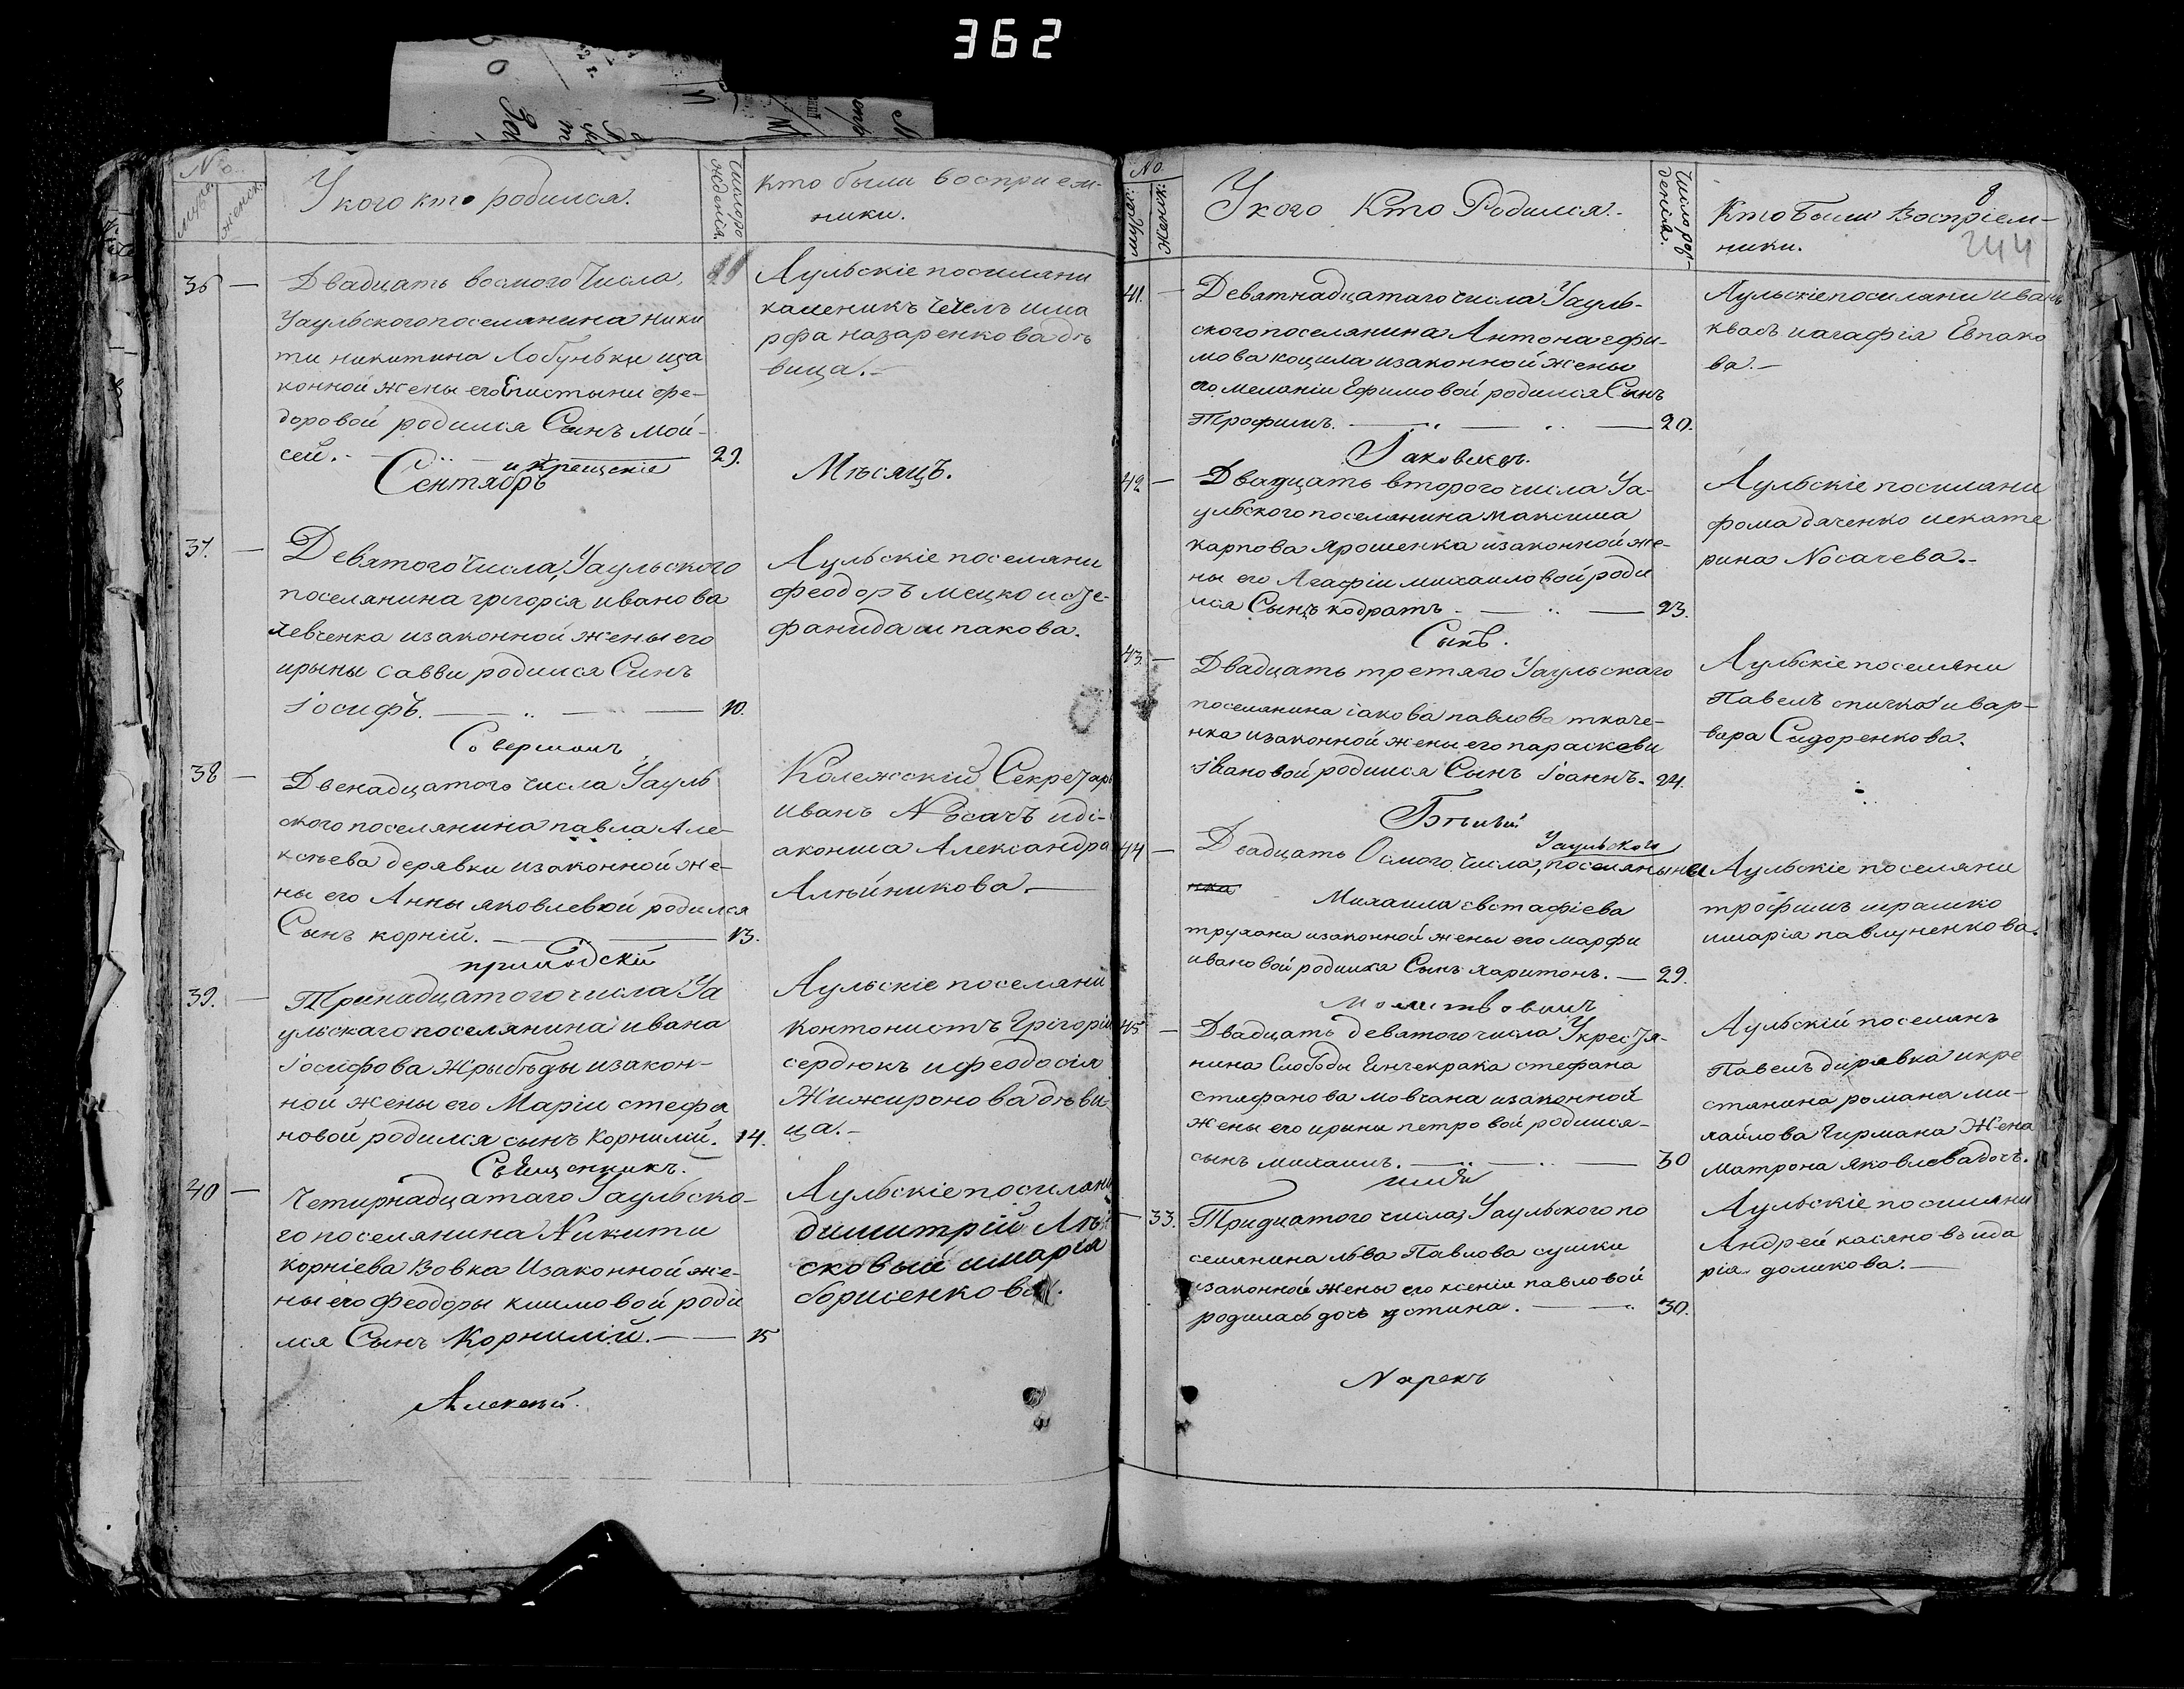 362
No.
мужс.
женск.
У кого кто родился.
Число рожденія.
Кто были восприем-
ники.
36 —
Двадцать восмого Числа,
Уаульского поселянина ники
ти никитина Лобуньки иза
конной жены его Еистыни фе-
доровой родился Сынъ Мои-
сей. 29.
и крещенie
Аульскіе посиляни
каленикъ чечелъ има
рфа назаренкова дѣ
вица.-
Сентябрь
Мѣсяцъ.
37. —
Девятого Числа, Уаульского
поселянина григорія иванова
левченка изаконной жены его
ирыны савви родился Синъ
іосифъ. 10.
Аульскіе поселяни
феодоръ мецко исте-
фанида шпакова.
Совершалъ
38 —
Двенадцатого числа Уауль
ского поселянина павла Але-
ксѣева дерявки изаконной же-
ны его Анны яковлевой родился
Сынъ корній. 13.
Колежскій Секретарь
иванъ Носачъ иді-
аконша Александра
Алѣйникова.—
приходскій
39. —
Тринадцатого числа Уа
ульскаго поселянина ивана
іосифова Жрыбѣды изакон-
ной жены его Маріи стефа
новой родился сынъ Корнилій. 14.
Аульскіе поселяни
контонистъ Григорій
сердюкъ ифеодосія
Жижиронова дѣви
ца.-
Священникъ.
40 —
Четирнадцатаго Уаульско-
го поселянина Никити
корніева Вовка Изаконной же-
ны его Феодоры климовой роди
лся Сынъ Корнилій.— 15
Аульскіе посиляни
димитрій Лѣ
сковый имарія
борисенкова.
Алексѣй.
No.
мужск:
женск:
У кого Кто Родился.
Число рож-
денія.
Кто Были Воспріем-
ники.
8
244
41. —
Девятнадцатаго числа Уауль-
ского поселянина Антона ефи-
мова коцила изаконной жены
его меланіи Ефимовой родился Сынъ
Трофимъ. 20.
Аульскіе посиляни иванъ
квашъ иагафія Евпако
ва.—
Іаковлевъ.
42 —
Двадцать второго числа Уа-
ульского поселянина максима
карпова ярошенка изаконной же-
ны его Агафіи михаиловой роди
лся Сынъ кодратъ. 23.
Аульскіе посиляни
фома дяченко иекате
рина Носачева.-
Сынъ.
43. —
Двадцать третяго Уаульскаго
поселянина іакова павлова ткаче-
нка изаконной жены его параскеви
івановой родился Сынъ іоаннъ. 24.
Аульскіе поселяни
Павелъ спичка ивар-
вара Сидоренкова.
Бѣлый
44 —
Двадцать Осмого числа, Уаульского поселяныны
нка
Михаила евстафіева
трухана изаконной жены его марфи
ивановой родился Сынъ харитонъ. — 29.
Аульскіе поселяни
трофимъ ирашко
имарія павлученкова.
Молитвовалъ
45 —
Двадцать девятого числа Укрестя-
нина Слободы Гинчекрака стефана
стефанова мовчана изаконной
жены его ирыни петровой родился-
сынъ михаилъ. 30
Аульскій поселянъ
Павелъ дирявка икре
стянина романа ми-
хайлова Чирмана Жена
матрона яковлева дочъ.
имя
— 33.
Тридцатого числа, Уаульского по
селянина льва Павлова сушки
изаконной жены его ксеніи павловой
родилась дочъ устина. 30.
Аульскіе посиляни
Андрей касяновъ ида
рія доликова.—
Нарекъ